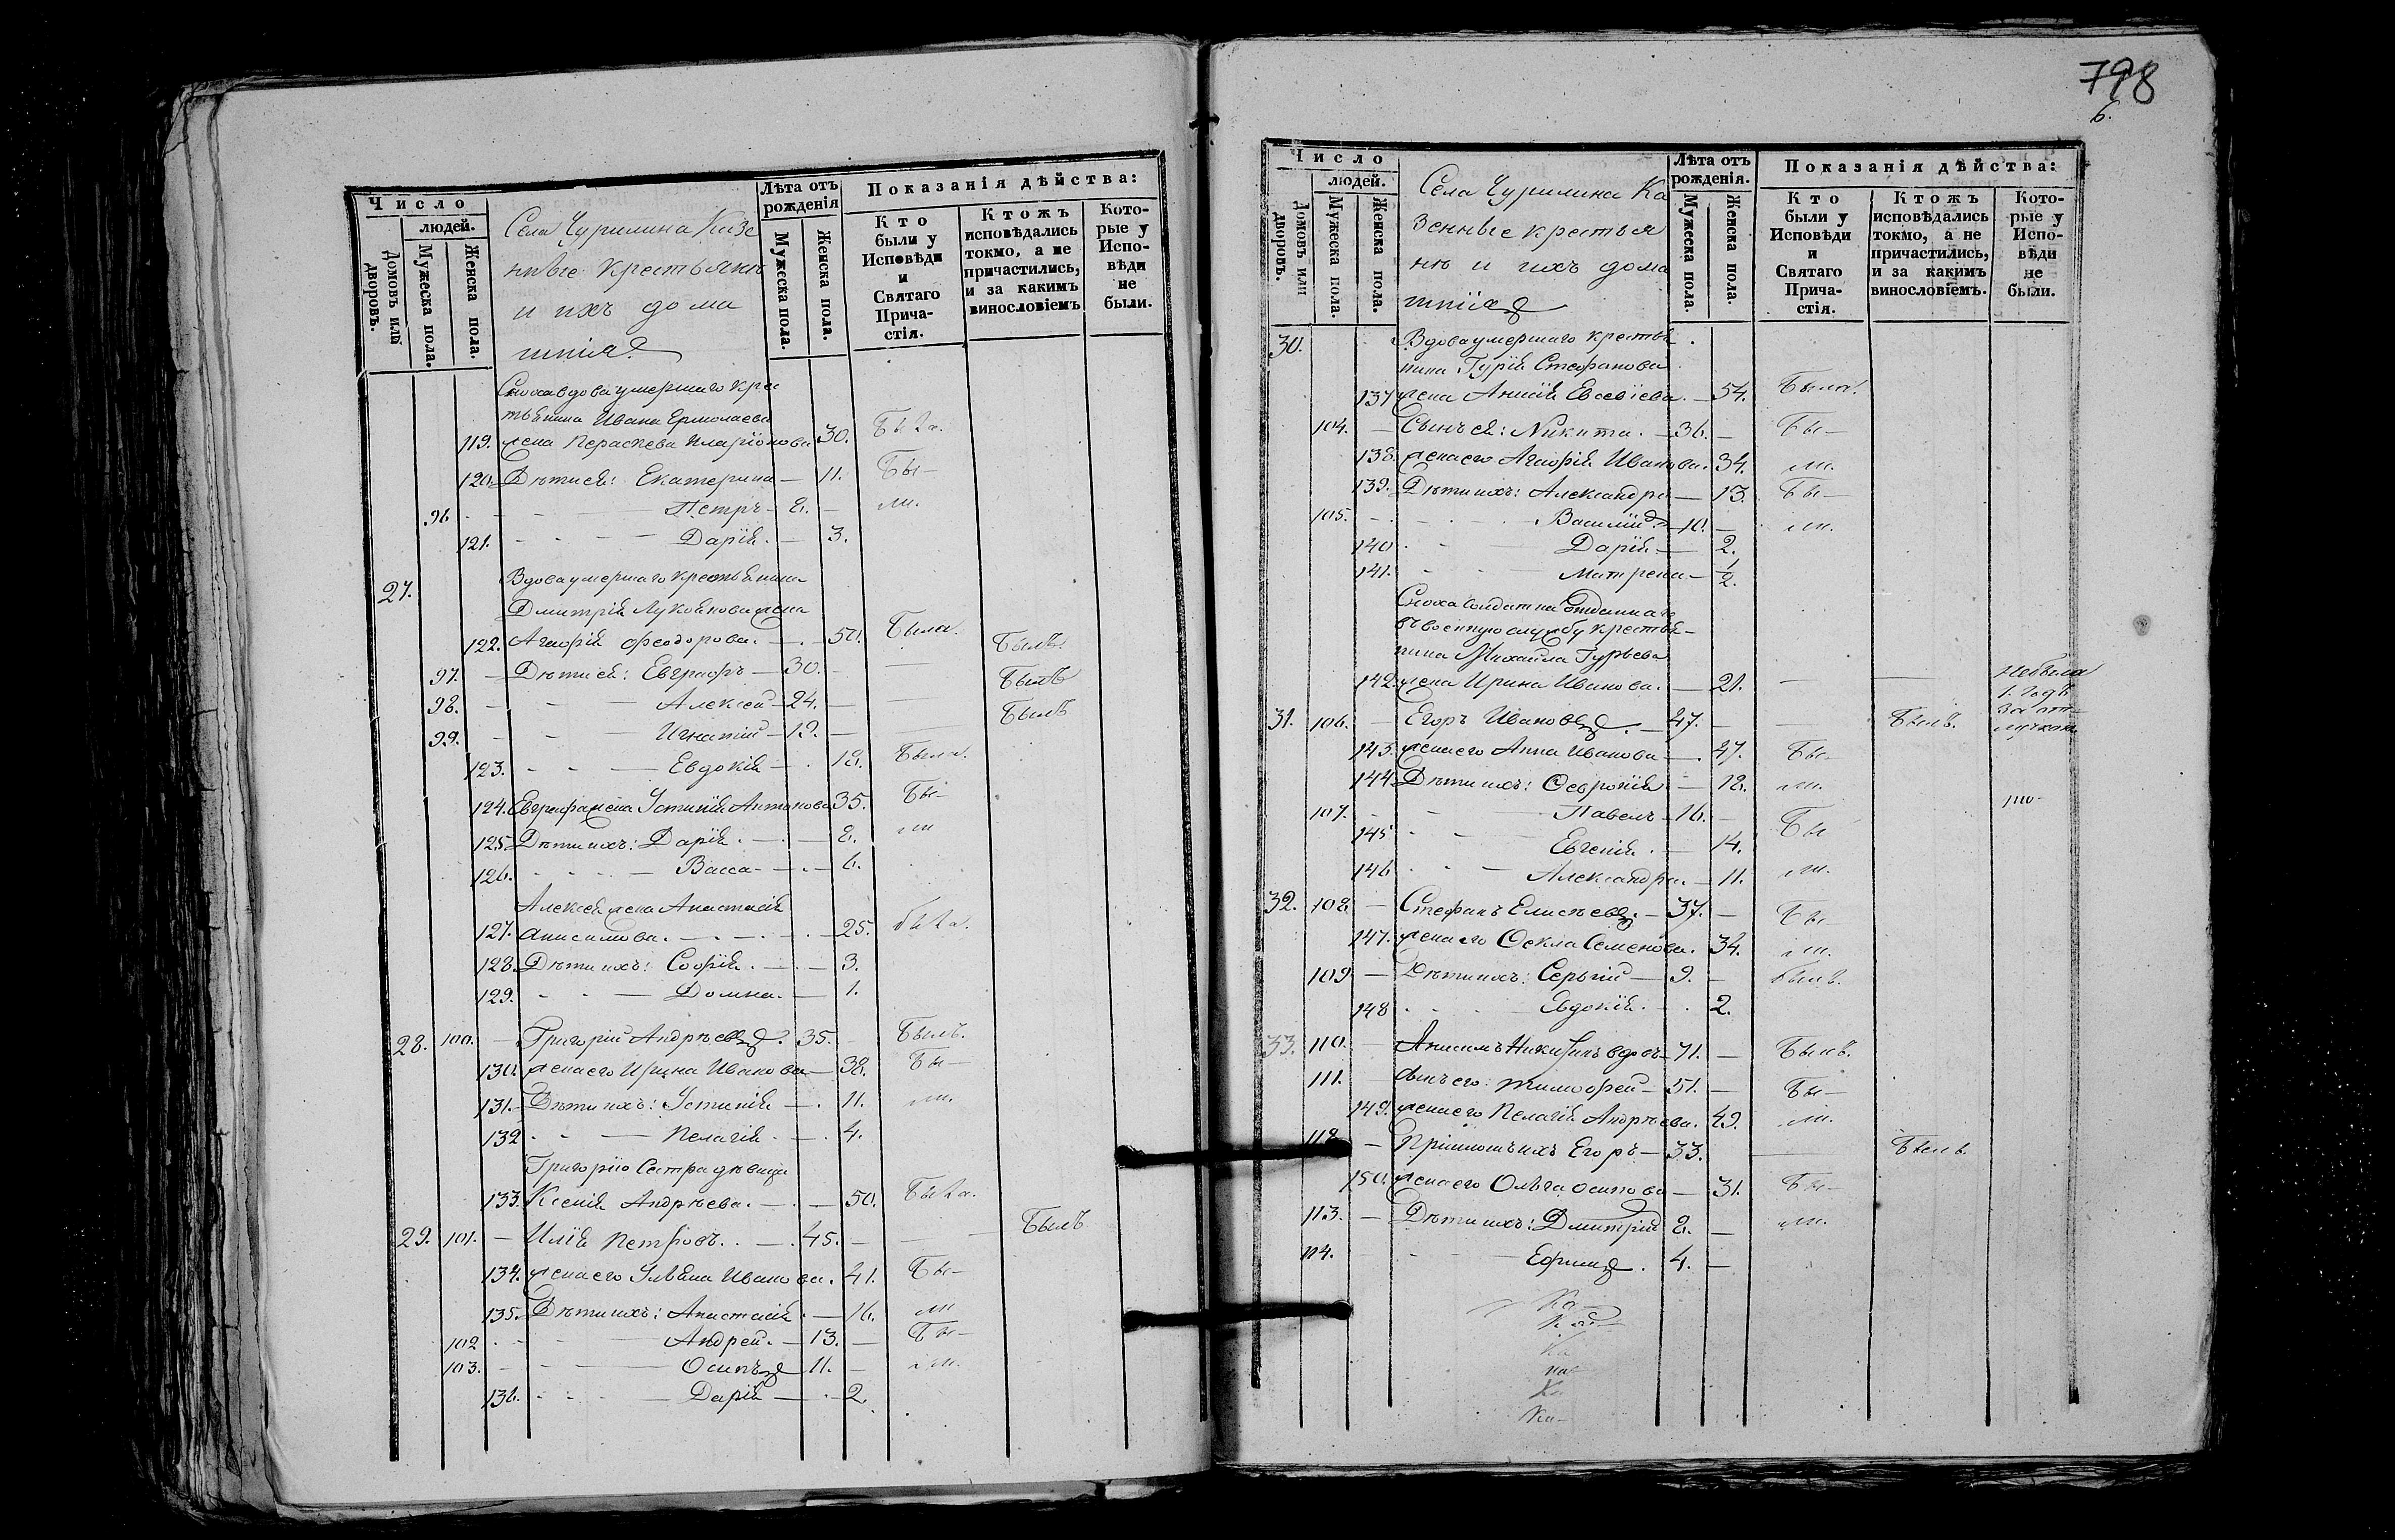 798
6.
Число
людей.
Домовъ или дворовъ.
Мужеска пола.
Женска пола.
Села Чурилина Казе
нные крестьяне
и ихъ дома
шнія
Лѣта отъ рожденія
Мужеска пола.
Женска пола.
Показанія дѣйства:
Кто были у Исповѣди и Святаго Прича-стія.
Ктожъ исповѣдались токмо, а не причастились, и за какимъ винословіемъ
Кото-рые у Испо-вѣди не были.
Сноха вдова умершаго крес
тьянина Ивана Ермолаева
119. жена Параскева Иларіонова 30. Была.
120. Дѣти ея: Екатерина — 11. Бы—
96. Петръ — 8. — ли.
121. Дарія. — 3.
27. Вдова умершаго крестьянина
Дмитрія Лукоянова жена
122. Агафія Феодорова. — 50. Была.
97. — Дѣти ея: Евграфъ — 30. — Былъ.
98. — Алексей — 24. — Былъ
99. — Игнатій — 19. — Былъ
123. — Евдокія — 18. Была.
124. Евграфа жена Устинія Антонова 35. Бы—
125. Дѣти ихъ: Дарія. — 8. ли
126. — Васса — 6.
Алексея жена Анастасія
127. Анисимова. — 25. Была.
128. Дѣти ихъ: Софія. — 3.
129. — Домна. — 1.
28. 100. — Григорій Андрѣевъ. 35. — Былъ.
130. жена его Ирина Иванова — 38. Бы—
131. Дѣти ихъ: Устинія — 11. ли.
132 — Пелагія. — 4.
Григорію Сестра дѣвица
133. Ксенія Андрѣева. — 50. Была.
29. 101. — Илія Петровъ. — 45. — Былъ
134. жена его Ульяна Иванова. 41. Бы—
135. Дѣти ихъ: Анастасія. — 16. ли
102 — Андрей. — 13. — Бы—
103. — Осипъ 11. — ли.
136. — Дарія — 2.
Число
людей.
Домовъ или дворовъ.
Мужеска пола.
Женска пола.
Села Чурилина Ка
зенные крестья
не и ихъ дома
шнія
Лѣта отъ рожденія.
Мужеска пола.
Женска пола.
Показанія дѣйства:
Кто были у Исповѣди и Святаго Прича-стія.
Ктожъ исповѣдались токмо, а не причастились, и за какимъ винословіемъ.
Кото-рые у Испо-вѣди не были.
30. Вдова умершаго крестья
нина Гурія Стефанова
137 жена Анисія Евсевіева. — 54. Была.
104. — Сынъ ея: Никита. — 36. — Бы—
138. жена его Агафія Иванова. 34. ли.
139. Дѣти ихъ: Александра — 13. Бы—
105. — Василій — 10. — ли.
140 — Дарія — 2.
141. — Матрена — 1/2.
Сноха Солдатка отданнаго
въ военную службу крестья-
нина Михаила Гурьева
142. жена Ирина Иванова. — 21. — — не была
1. годъ
за от-
лучкою
31. 106. — Егоръ Ивановъ. — 47. — Былъ.
143. жена его Анна Иванова — 47. Бы—
144. Дѣти ихъ: Февронія — 18. ли.
107. — Павелъ — 16. —
145 — Евгенія. — 14. Бы
146 — Александра. — 11. ли.
32. 108. — Стефанъ Елисѣевъ. — 37. — Бы—
147. жена его Фекла Семенова. 34. ли.
109 — Дѣти ихъ: Сергій — 9. — Былъ.
148 — Евдокія. 2.
33. 110. — Анисимъ Никитинъ вдовъ 71. — Былъ.
111. — Сынъ его: Тимофей — 51. — Бы—
149. жена его Пелагія Андрѣева. 49. ли.
112. — Пріимышъ ихъ Егоръ — 33. — Былъ.
150. жена его Ольга Осипова — 31. Бы—
113. — Дѣти ихъ: Дмитрій 8. — ли.
114. — Ефимъ. 4. —